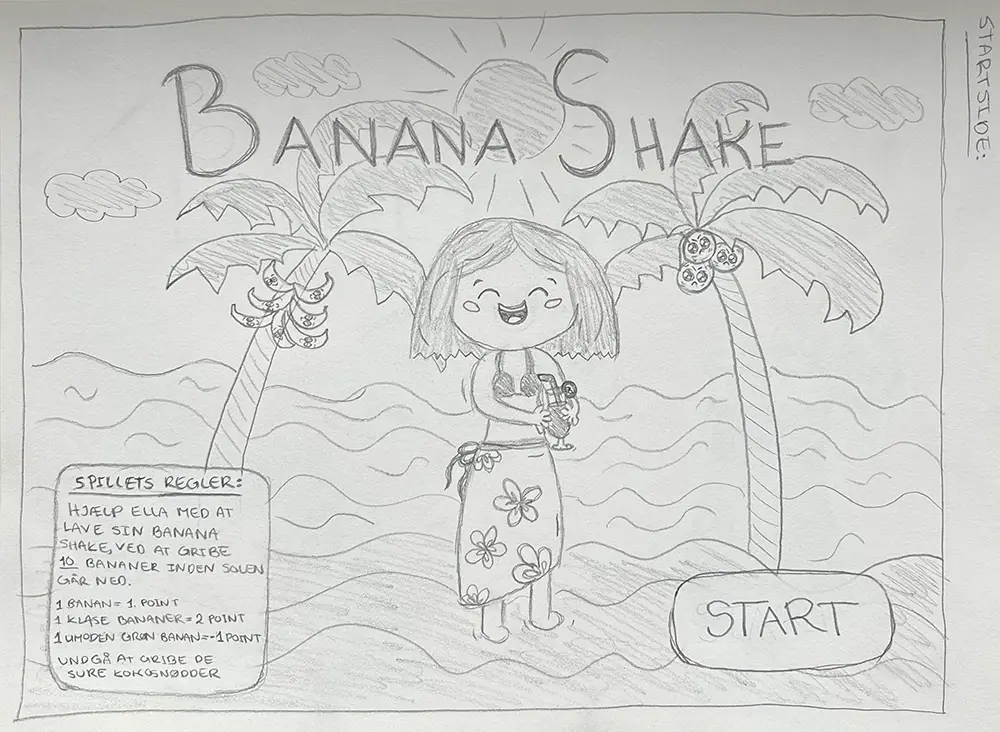 STARTSIDE:
BANANA SHAKE
SPILLETS REGLER:
HJÆLP ELLA MED AT
LAVE SIN BANANA
SHAKE, VED AT GRIBE
10 BANANER INDEN SOLEN
GÅR NED.
1 BANAN = 1. POINT
1 KLASE BANANER = 2 POINT
1 UMODEN GRØN BANAN = -1 POINT
UNDGÅ AT GRIBE DE
SURE KOKOSNØDDER
START